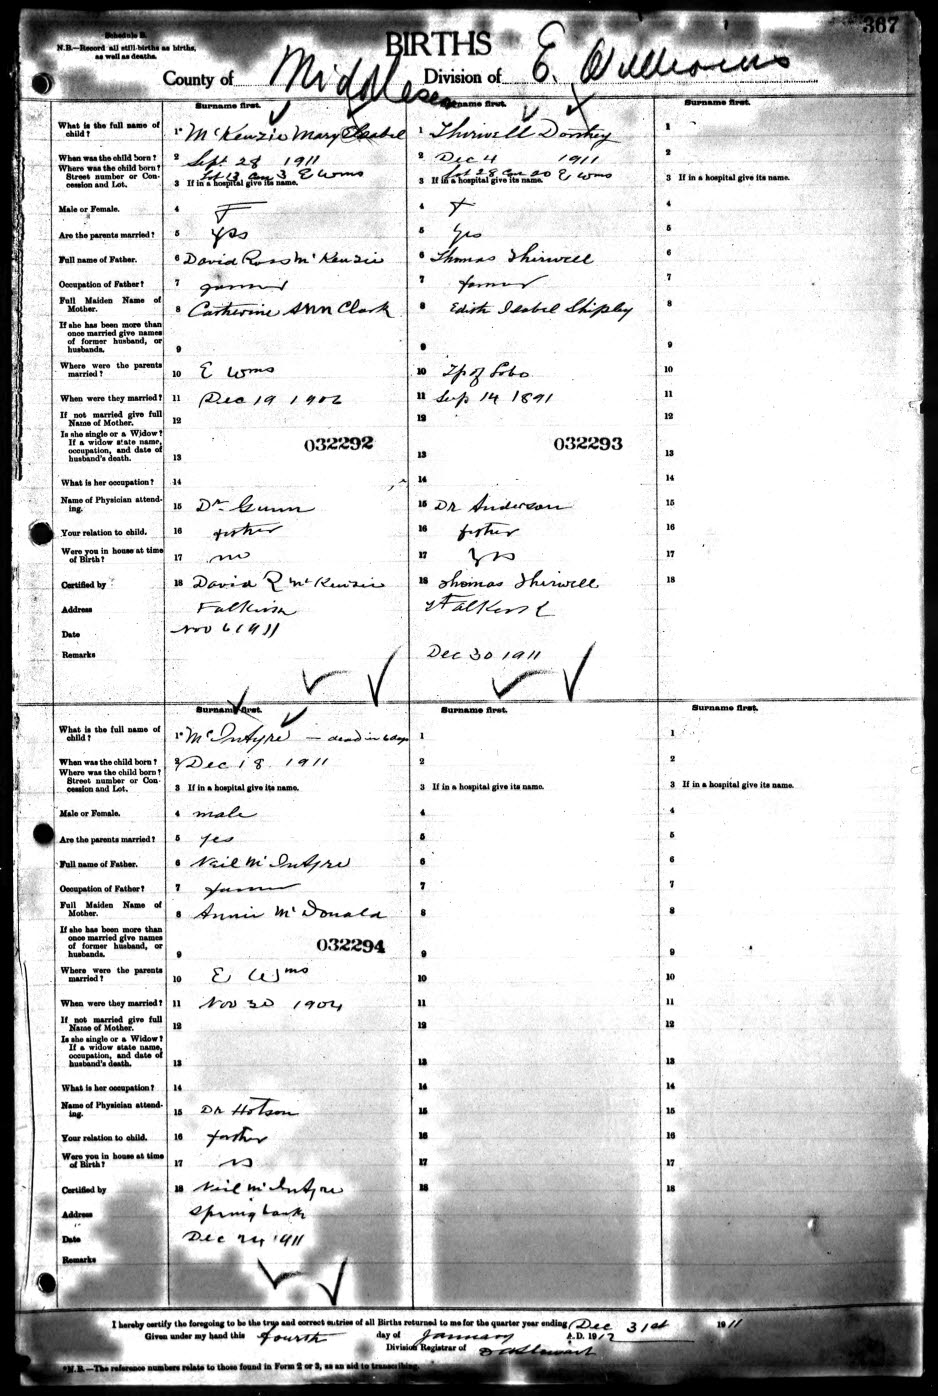 367
Schedule B.
N.B.—Record all still-births as births,
as well as deaths.
BIRTHS
County of Middlesex Division of E. Williams
Surname first.
Surname first.
Surname first.
What is the full name of child? 1* McKenzie Mary Isabel 1 Thirwell Dorothy 1
When was the child born? 2 Sept 28 1911 2 Dec 4 1911 2
Where was the child born? Street number or Concession and Lot. Lot 13 Con 3 E Wms Lot 28 Con 20 E Wms
3 If in a hospital give its name. 3 If in a hospital give its name. 3 If in a hospital give its name.
Male or Female. 4 F 4 F 4
Are the parents married? 5 yes 5 yes 5
Full name of Father. 6 David Ross McKenzie 6 Thomas Thirwell 6
Occupation of Father? 7 farmer 7 farmer 7
Full Maiden Name of Mother. 8 Catherine Ann Clark 8 Edith Isabel Shipley 8
If she has been more than once married give names of former husband, or husbands. 9 9 9
Where were the parents married? 10 E Wms 10 Tp of Lobo 10
When were they married? 11 Dec 19 1906 11 Sep 14 1891 11
If not married give full Name of Mother. 12 12 12
Is she single or a Widow? If a widow state name, occupation, and date of husband's death. 13 032292 13 032293 13
What is her occupation? 14 14 14
Name of Physician attending. 15 Dr Gunn 15 Dr Anderson 15
Your relation to child. 16 father 16 father 16
Were you in house at time of Birth? 17 no 17 yes 17
Certified by 18 David R McKenzie 18 Thomas Thirwell 18
Address Falkirk Falkirk
Date Nov 6 1911
Remarks Dec 30 1911
Surname first.
Surname first.
Surname first.
What is the full name of child? 1* McIntyre — dead in 6 days 1 1
When was the child born? 2 Dec 18 1911 2 2
Where was the child born? Street number or Concession and Lot. 3 If in a hospital give its name. 3 If in a hospital give its name. 3 If in a hospital give its name.
Male or Female. 4 male 4 4
Are the parents married? 5 yes 5 5
Full name of Father. 6 Neil McIntyre 6 6
Occupation of Father? 7 farmer 7 7
Full Maiden Name of Mother. 8 Annie McDonald 8 8
If she has been more than once married give names of former husband, or husbands. 9 032294 9 9
Where were the parents married? 10 E Wms 10 10
When were they married? 11 Nov 30 1904 11 11
If not married give full Name of Mother. 12 12 12
Is she single or a Widow? If a widow state name, occupation, and date of husband's death. 13 13 13
What is her occupation? 14 14 14
Name of Physician attending. 15 Dr Hotson 15 15
Your relation to child. 16 father 16 16
Were you in house at time of Birth? 17 no 17 17
Certified by 18 Neil McIntyre 18 18
Address Springbank
Date Dec 24 1911
Remarks
I hereby certify the foregoing to be the true and correct entries of all Births returned to me for the quarter year ending Dec 31st 1911
Given under my hand this fourth day of January A.D. 1912
Division Registrar of Stewart
*N.B.—The reference numbers relate to those found in Form 2 or 3, as an aid to transcribing.